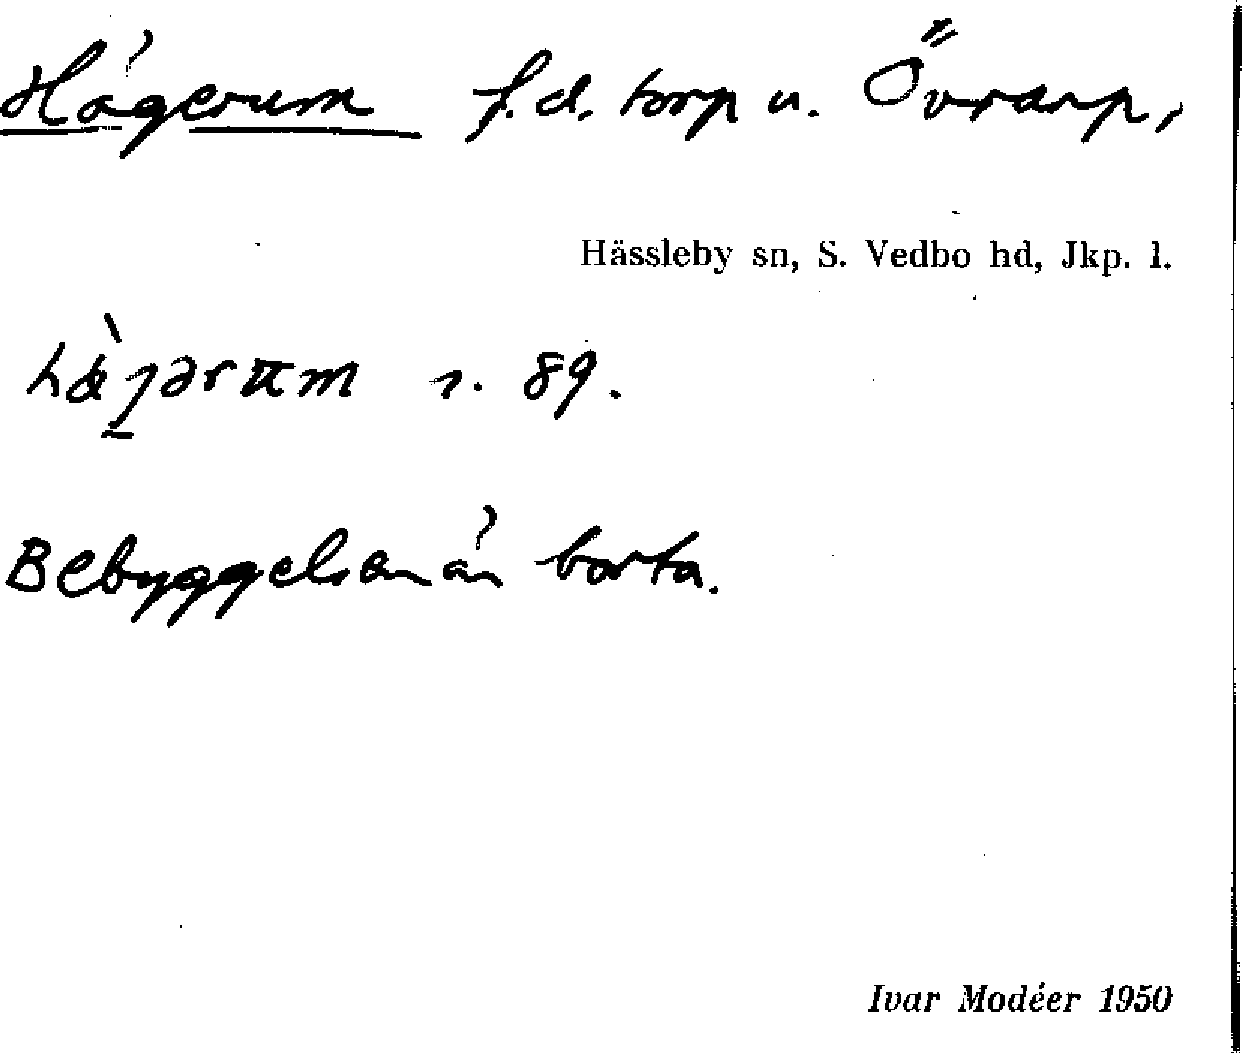 Hågerum f.d. torp u. Övrarp,
Hässleby sn, S. Vedbo hd, Jkp. l.
s. 89.
Bebyggelsen är borta.
Ivar Modéer 1950